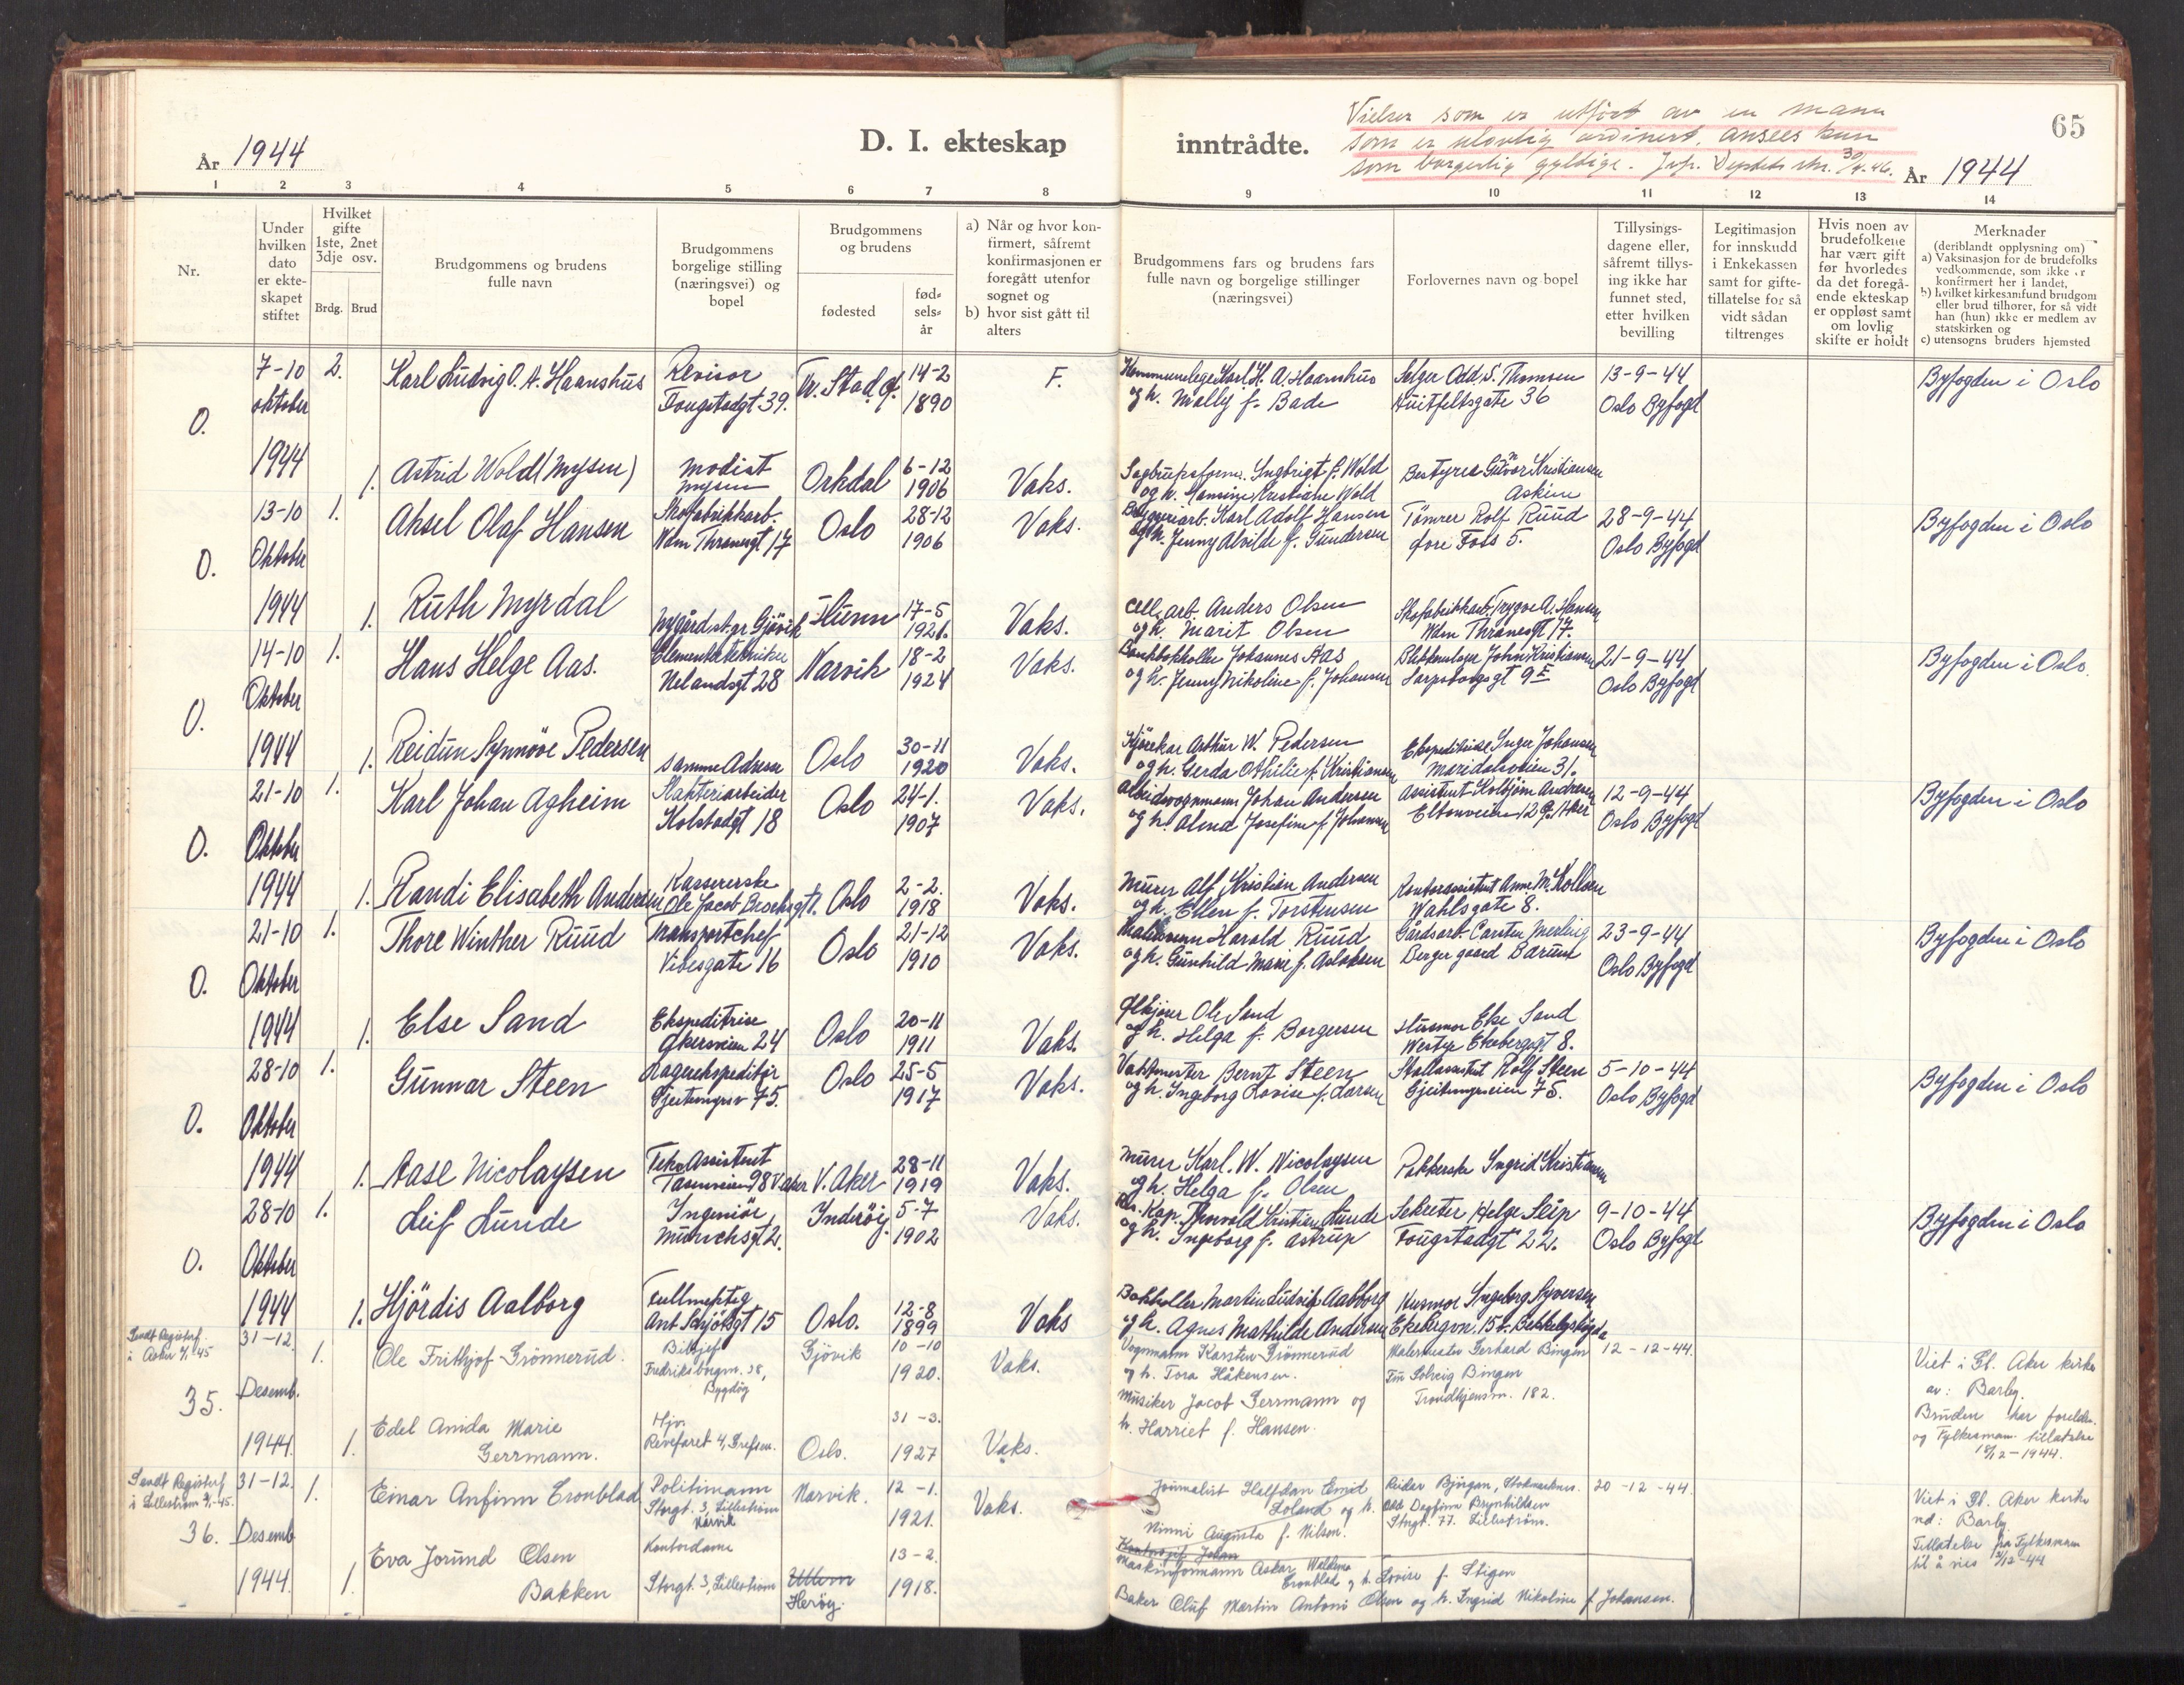 Vielser som er utført av en mann
som er ulovlig ordinert, ansees kun
som borgerlig gyldige. Jvfr. Deptets skr. 30/4-46.
65
År 1944
D. I. ekteskap inntrådte.
År 1944
1 2 3 4 5 6 7 8 9 10 11 12 13 14
Nr.
Under hvilken dato er ekteskapet stiftet
Hvilket gifte 1ste, 2net 3dje osv.
Brdg. Brud
Brudgommens og brudens fulle navn
Brudgommens borgelige stilling (næringsvei) og bopel
Brudgommens og brudens
fødested
fødselsår
a) Når og hvor konfirmert, såfremt konfirmasjonen er foregått utenfor sognet og
b) hvor sist gått til alters
Brudgommens fars og brudens fars fulle navn og borgelige stillinger (næringsvei)
Forlovernes navn og bopel
Tillysingsdagene eller, såfremt tillysing ikke har funnet sted, etter hvilken bevilling
Legitimasjon for innskudd i Enkekassen samt for giftetillatelse for så vidt sådan tiltrenges
Hvis noen av brudefolkene har vært gift før hvorledes da det foregående ekteskap er oppløst samt om lovlig skifte er holdt
Merknader
(deriblandt opplysning om)
a) Vaksinasjon for de brudefolks vedkommende, som ikke er konfirmert her i landet,
b) hvilket kirkesamfund brudgom eller brud tilhører, for så vidt han (hun) ikke er medlem av statskirken og
c) utensogns bruders hjemsted
O.
7-10 oktober 1944
2.
Karl Ludvig O. A. Haanshus
Revisor
Fougstadgt 39.
14-2
1890
F.
Kommunelege Karl H. A. Haanshus
og h. Molly f. Bade
Selger Odd S. Thomsen
Huitfeltsgate 36
13-9-44
Oslo Byfogd
Byfogden i Oslo
1.
Astrid Wold (Mysen)
Modist
Mysen
Orkdal
6-12
1906
Vaks.
Ingbrigt f. Wold
og h. Hansine Kristiane Wold
Kristiansen
Askim
O.
13-10 Oktober 1944
1.
Aksel Olaf Hansen
Skofabrikkarb.
Wdm Thranesgt 17
Oslo
28-12
1906
Vaks.
Bryggeriarb. Karl Adolf Hansen
og h. Jenny Alvilde f. Gundersen
Tömrer Rolf Ruud
fore Foss 5.
28-9-44
Oslo Byfogd
Byfogden i Oslo
1.
Ruth Myrdal
Nygård st. pr Gjövik
Hunn
17-5
1921.
Vaks.
Cell. arb. Anders Olsen
og h. Marit Olsen
Skofabrikkarb. Trygve A. Hansen
Wdm Thranesgt 17.
O.
14-10 Oktober 1944
1.
Hans Helge Aas.
Nelandsgt 28
Narvik
18-2
1924
Vaks.
Bankbokholder Johannes Aas
og h. Jenny Nikoline f. Johansen
Blikkenslager John Kristiansen
Sarpsborggt 9 E
21-9-44
Oslo Byfogd
Byfogden i Oslo.
1.
Reidun Synnöve Pedersen
samme Adresse
Oslo
30-11
1920
Vaks.
Kjörekar Arthur W. Pedersen
og h. Gerda Othilie f. Kristiansen
Ekspeditrise Inger Johansen
Maridalsveien 31.
O.
21-10 Oktober 1944
1.
Karl Johan Agheim
Slakteriarbeider
Kolstadgt 18
Oslo
24-1.
1907
Vaks.
Arbeidsvognmann Johan Andersen
og h. Alma Josefine f. Johansen
Assistent Kolbjörn Andresen
12-9-44
Oslo Byfogd
Byfogden i Oslo
1.
Randi Elisabeth Andersen
Kassererske
Ole Jacob Brochsgt 1.
Oslo
2-2.
1918
Vaks.
Murer Alf Kristian Andersen
og h. Ellen f. Torstensen
Kontorassistent Anne M. Kollsen
Wahlsgate 8.
O.
21-10 Oktober 1944
1.
Thore Winther Ruud
Transportchef
Vibesgate 16
Oslo
21-12
1910
Vaks.
Harald Ruud
og h. Gunhild Marie f. Aslaksen
Gårdsarb. Carsten Merling
Berger gaard Bærum
23-9-44
Oslo Byfogd
Byfogden i Oslo
1.
Else Sand
Ekspeditrise
Akersveien 24
Oslo
20-11
1911
Vaks.
Ole Sand
og h. Helga f. Borgersen
Husmor Else Sand
Westye Ekebergsgt 8.
O.
28-10 Oktober 1944
1.
Gunnar Steen
Lagerekspeditör
Gjeitemyrsv 75.
Oslo
25-5
1917
Vaks.
Vaktmester Bernt Steen
og h. Ingeborg Lovise f. Larsen
Rolf Steen
Gjeitemyrsveien 75.
5-10-44
Oslo Byfogd
Byfogden i Oslo
1.
Aase Nicolaysen
Tekn Assistent
Taasenveien 98 V. aker
V. Aker
28-11
1919
Vaks.
Murer Karl. W. Nicolaysen
og h. Helga f. Olsen
Pakkerske Ingrid Kristiansen
O.
28-10 Oktober 1944
1.
Leif Lunde
Ingeniör
Munchsgt 2.
Inderöy.
5-7
1902
Vaks.
Res. Kap. Thorvald Kristian Lunde
og h. Ingeborg f. Astrup
Sekretær Helge Seip
Fougstadgt 22.
9-10-44
Oslo Byfogd
Byfogden i Oslo
1.
Hjördis Aalborg
Fullmektig
Ant. Schjötsgt 15
Oslo.
12-8
1899
Vaks
Bokholder Martin Ludvig Aalborg
og h. Agnes Mathilde Andersen
Husmor Ingeborg Syversen
Ekebergvn. 15 b. Bekkelagshögda
Sendt Registerf.
i Asker 4/1-45
35.
31-12. Desemb. 1944.
1.
Ole Frithjof Grönnerud.
Fredriksborgvn. 38,
Bygdöy
Gjövik
10-10
1920.
Vaks.
Vognmann Karsten Grönnerud
og h. Tora Håkensen.
Malermester Gerhard Bingen
Fru Solveig Bingen
Trondhjemsvn. 182.
12-12-44.
Viet i Gl. Aker kirke
av: Barby.
Bruden har foreldre-
og Fylkesmann tillatelse
18/12-1944.
1.
Edel Anida Marie
Gerrmann.
Hjv.
Revefaret 4, Grefsen.
Oslo.
31-3.
1927
Vaks.
Musiker Jacob Gerrmann og
h. Harriet f. Hansen.
Sendt Registerf.
i Lilleström 4/1-45.
36.
31-12. Desemb 1944.
1.
Einar Anfinn Cronblad
Politimann
Storgt. 3, Lilleström
Narvik
Narvik.
12-1.
1921.
Vaks.
Journalist Halfdan Emid
Loland og h.
Ninni Augusta f. Nilsen.
Reidar Björgan, Stokmarknes.
Odd Dagfinn Brynhildsen
Storgt. 77. Lilleström.
20-12-44.
Viet i Gl. Aker kirke
ved: Barby.
Tillatelse fra Fylkesmann
til å vies 21/12-44
1.
Eva Jorund Olsen
Bakken
Kontordame
Storgt. 3, Lilleström
Herøy.
13-2.
1918.
Kontorsjef Johan
Maskinformann Oskar Waldemar
Cronblad og h. Lovise f. Stigen
Baker Oluf Martin Antoni Olsen og h. Ingrid Nikoline f. Johansen.